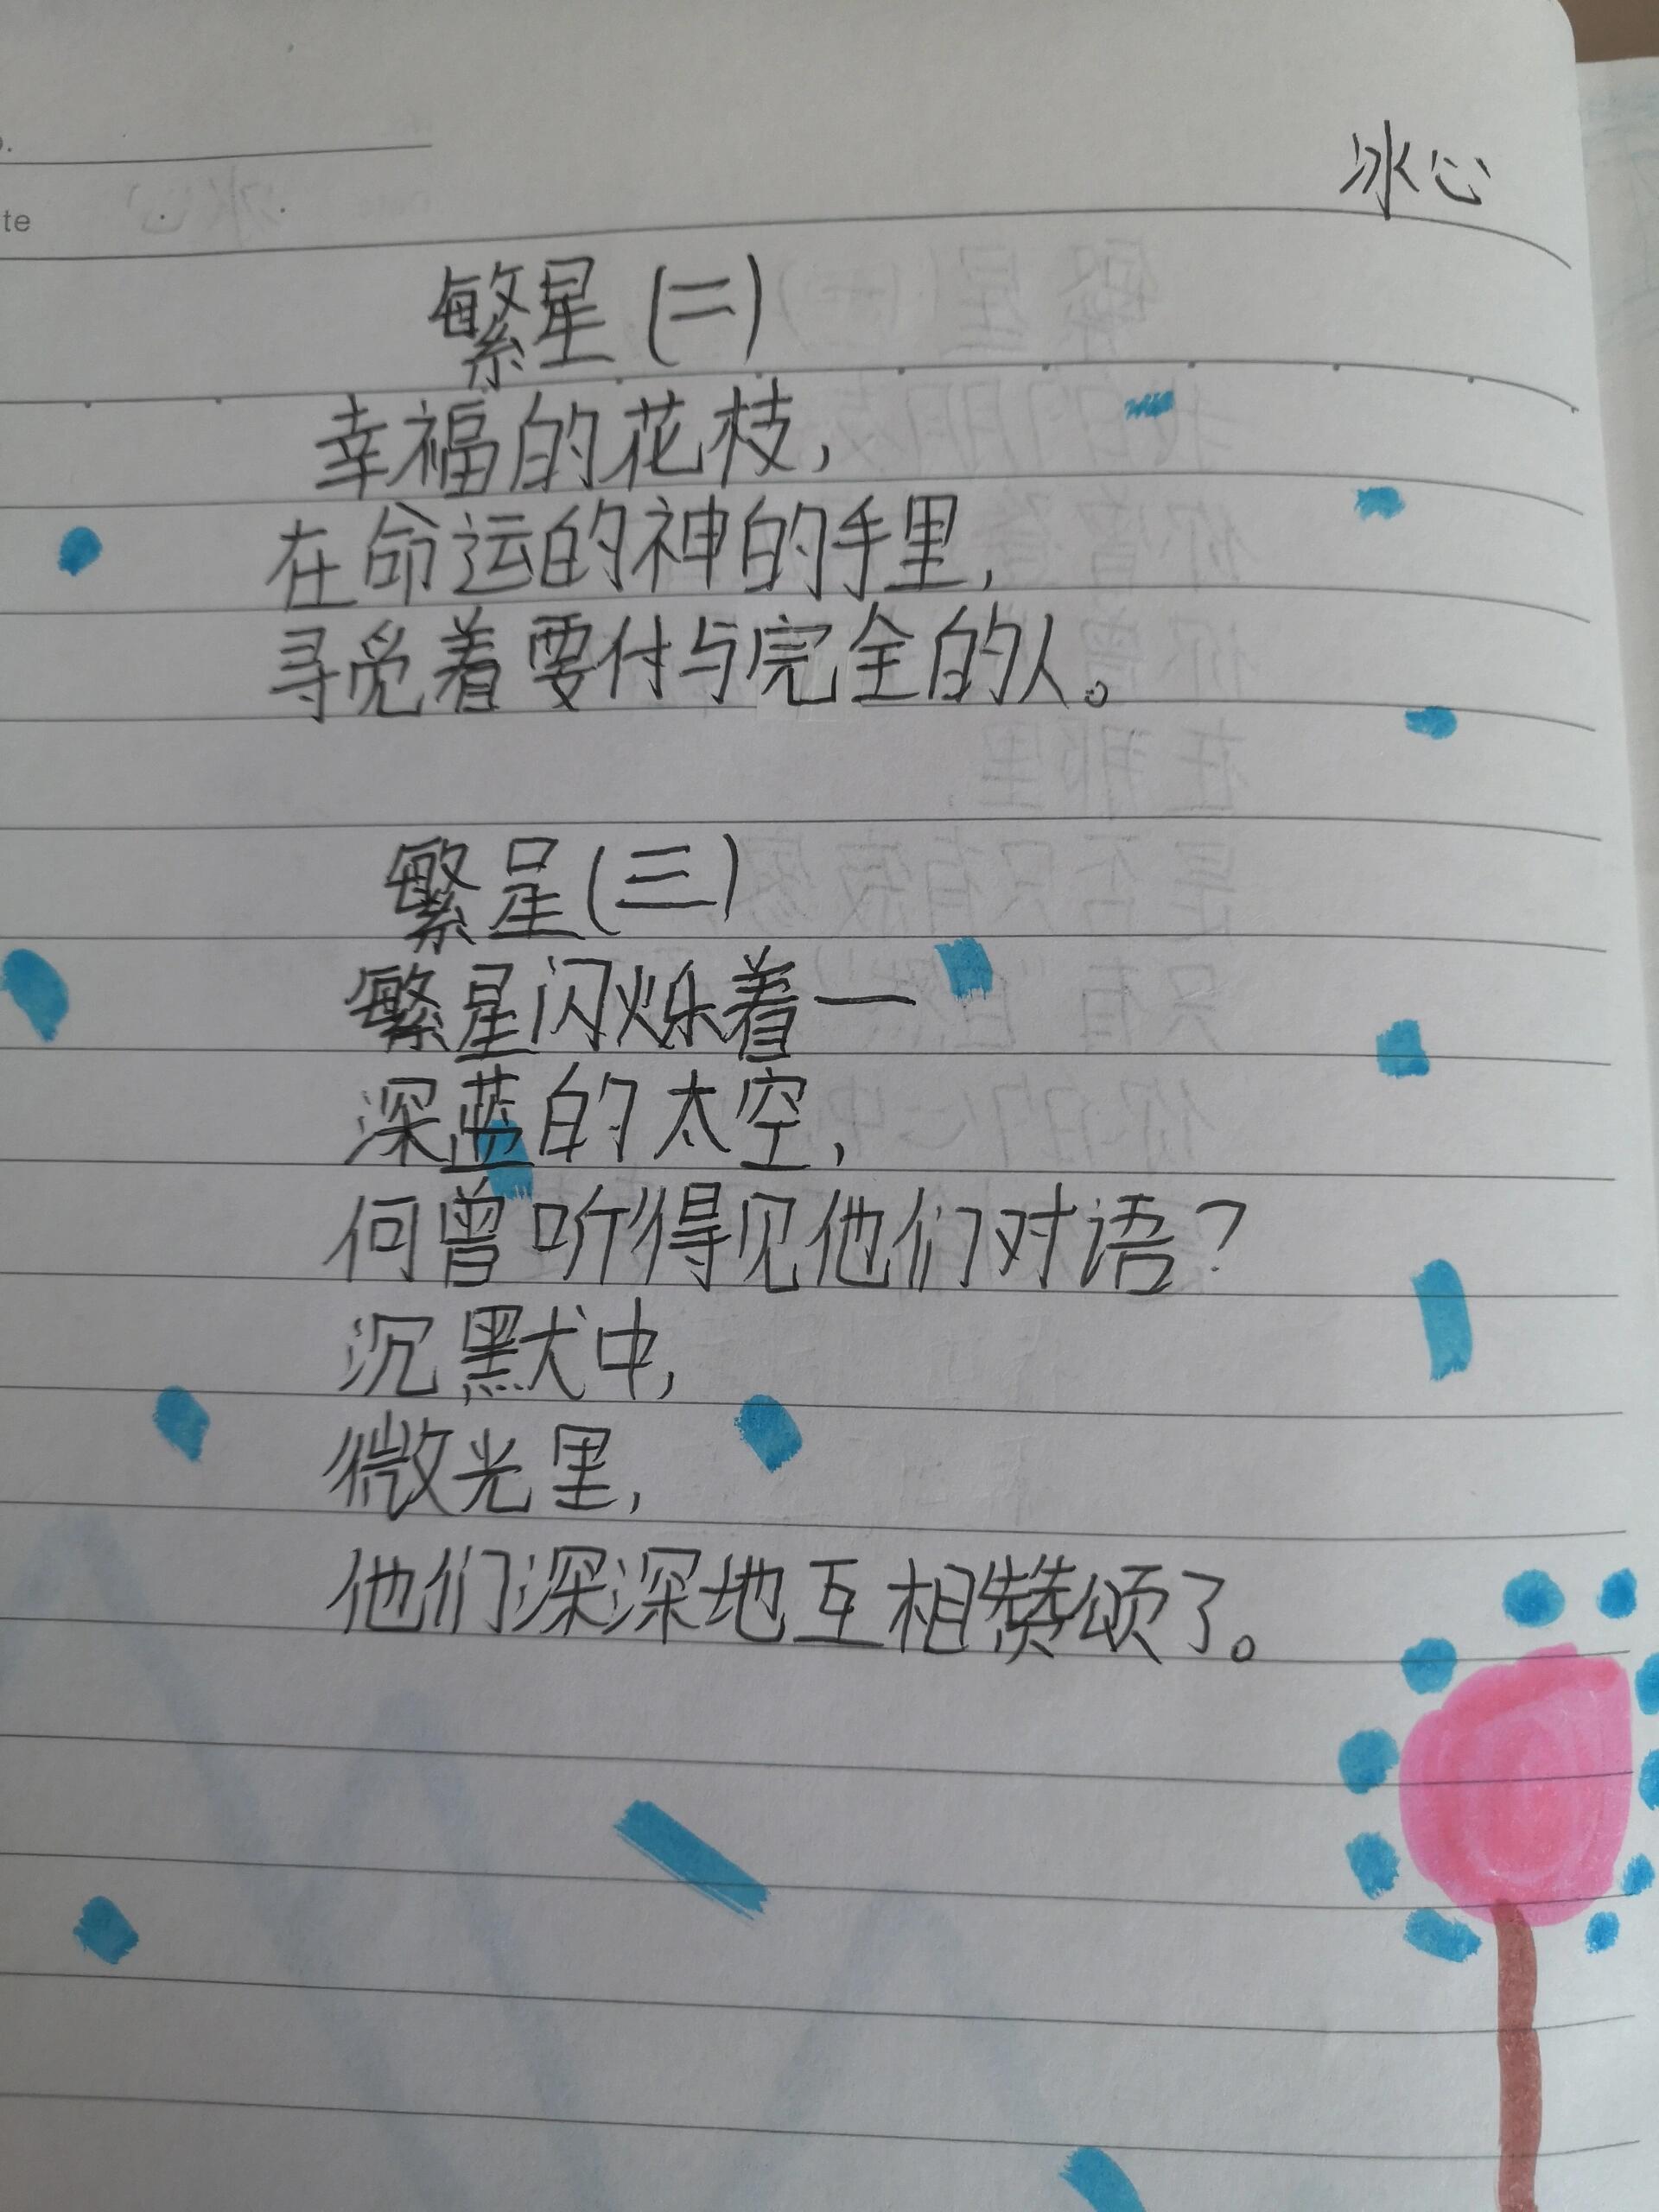 te
冰心
繁星(二)
幸福的花枝,
在命运的神的手里,
寻觅着要付与完全的人。
繁星(三)
繁星闪烁着一
深蓝的太空,
何曾听得见他们对语?
沉默中,
微光里,
他们深深地互相赞颂了。